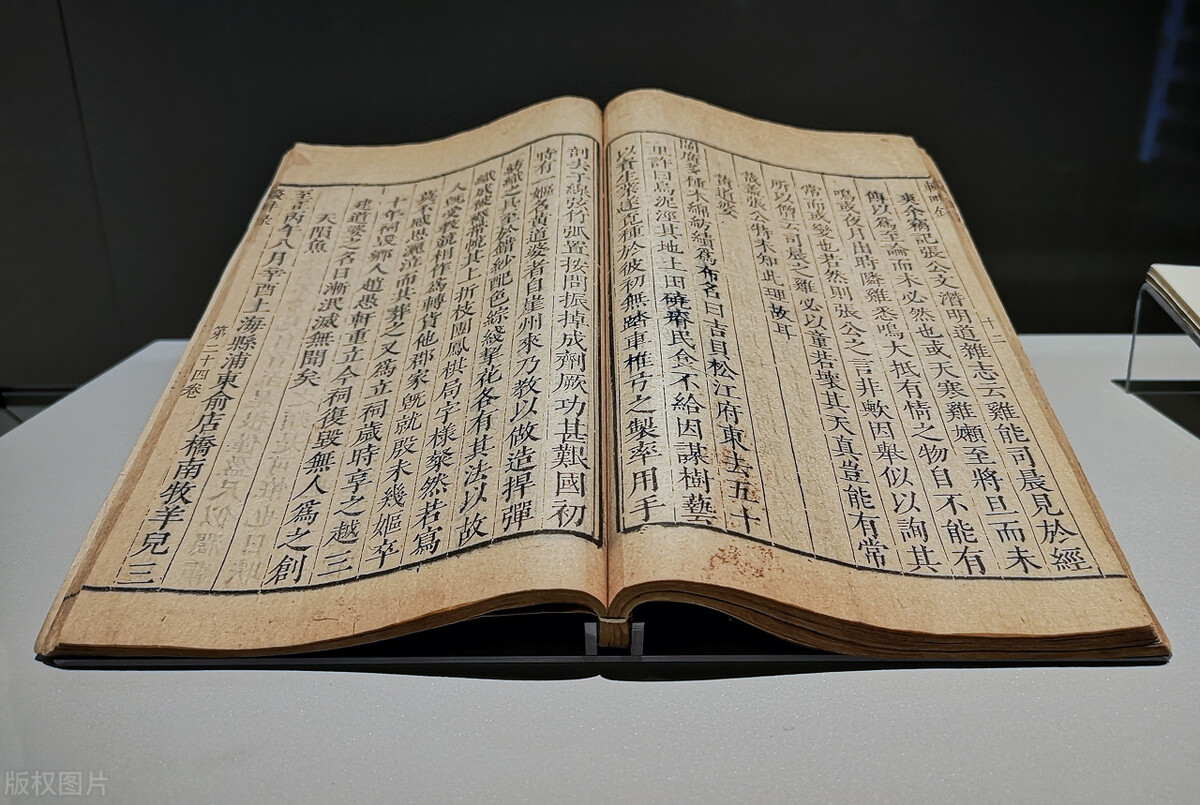 十二
東余稿記張公文潛明道雜志云雞能司晨見於經
傳以為至論而未必然也或天寒雞懶至將旦而未
鳴或夜月出時隣雞悉鳴大抵有情之物自不能有
常而或變也若然則張公之言非歟因舉似以詢其
所以僧云司晨之雞必以童若壞其天真豈能有常
哉蓋張公特未知此理故耳
黃道婆
閩廣多種木綿紡績爲布名曰吉貝松江府東去五十
里許曰烏泥涇其地土田磽瘠民食不給因謀樹藝
以資生業遂覓種於彼初無踏車椎弓之製率用手
剖去子線弦竹弧置按間振掉成劑厥功甚艱國初
時有一嫗名黃道婆者自崖州來乃教以做造捍彈
紡織之具至於錯紗配色綜綫挈花各有其法以故
織成被褥帶帨其上折枝團鳳棋局字樣粲然若寫
人旣受教競相作爲轉貨他郡家旣就殷未幾嫗卒
莫不感恩灑泣而共葬之又爲立祠歲時享之越三
十年祠毀鄉人趙愚軒重立今祠復毀無人爲之創
建道婆之名日漸泯滅無聞矣
天隕魚
至正丙午八月辛酉上海縣浦東俞店橋南牧羊兒三
第二十四卷
版权图片